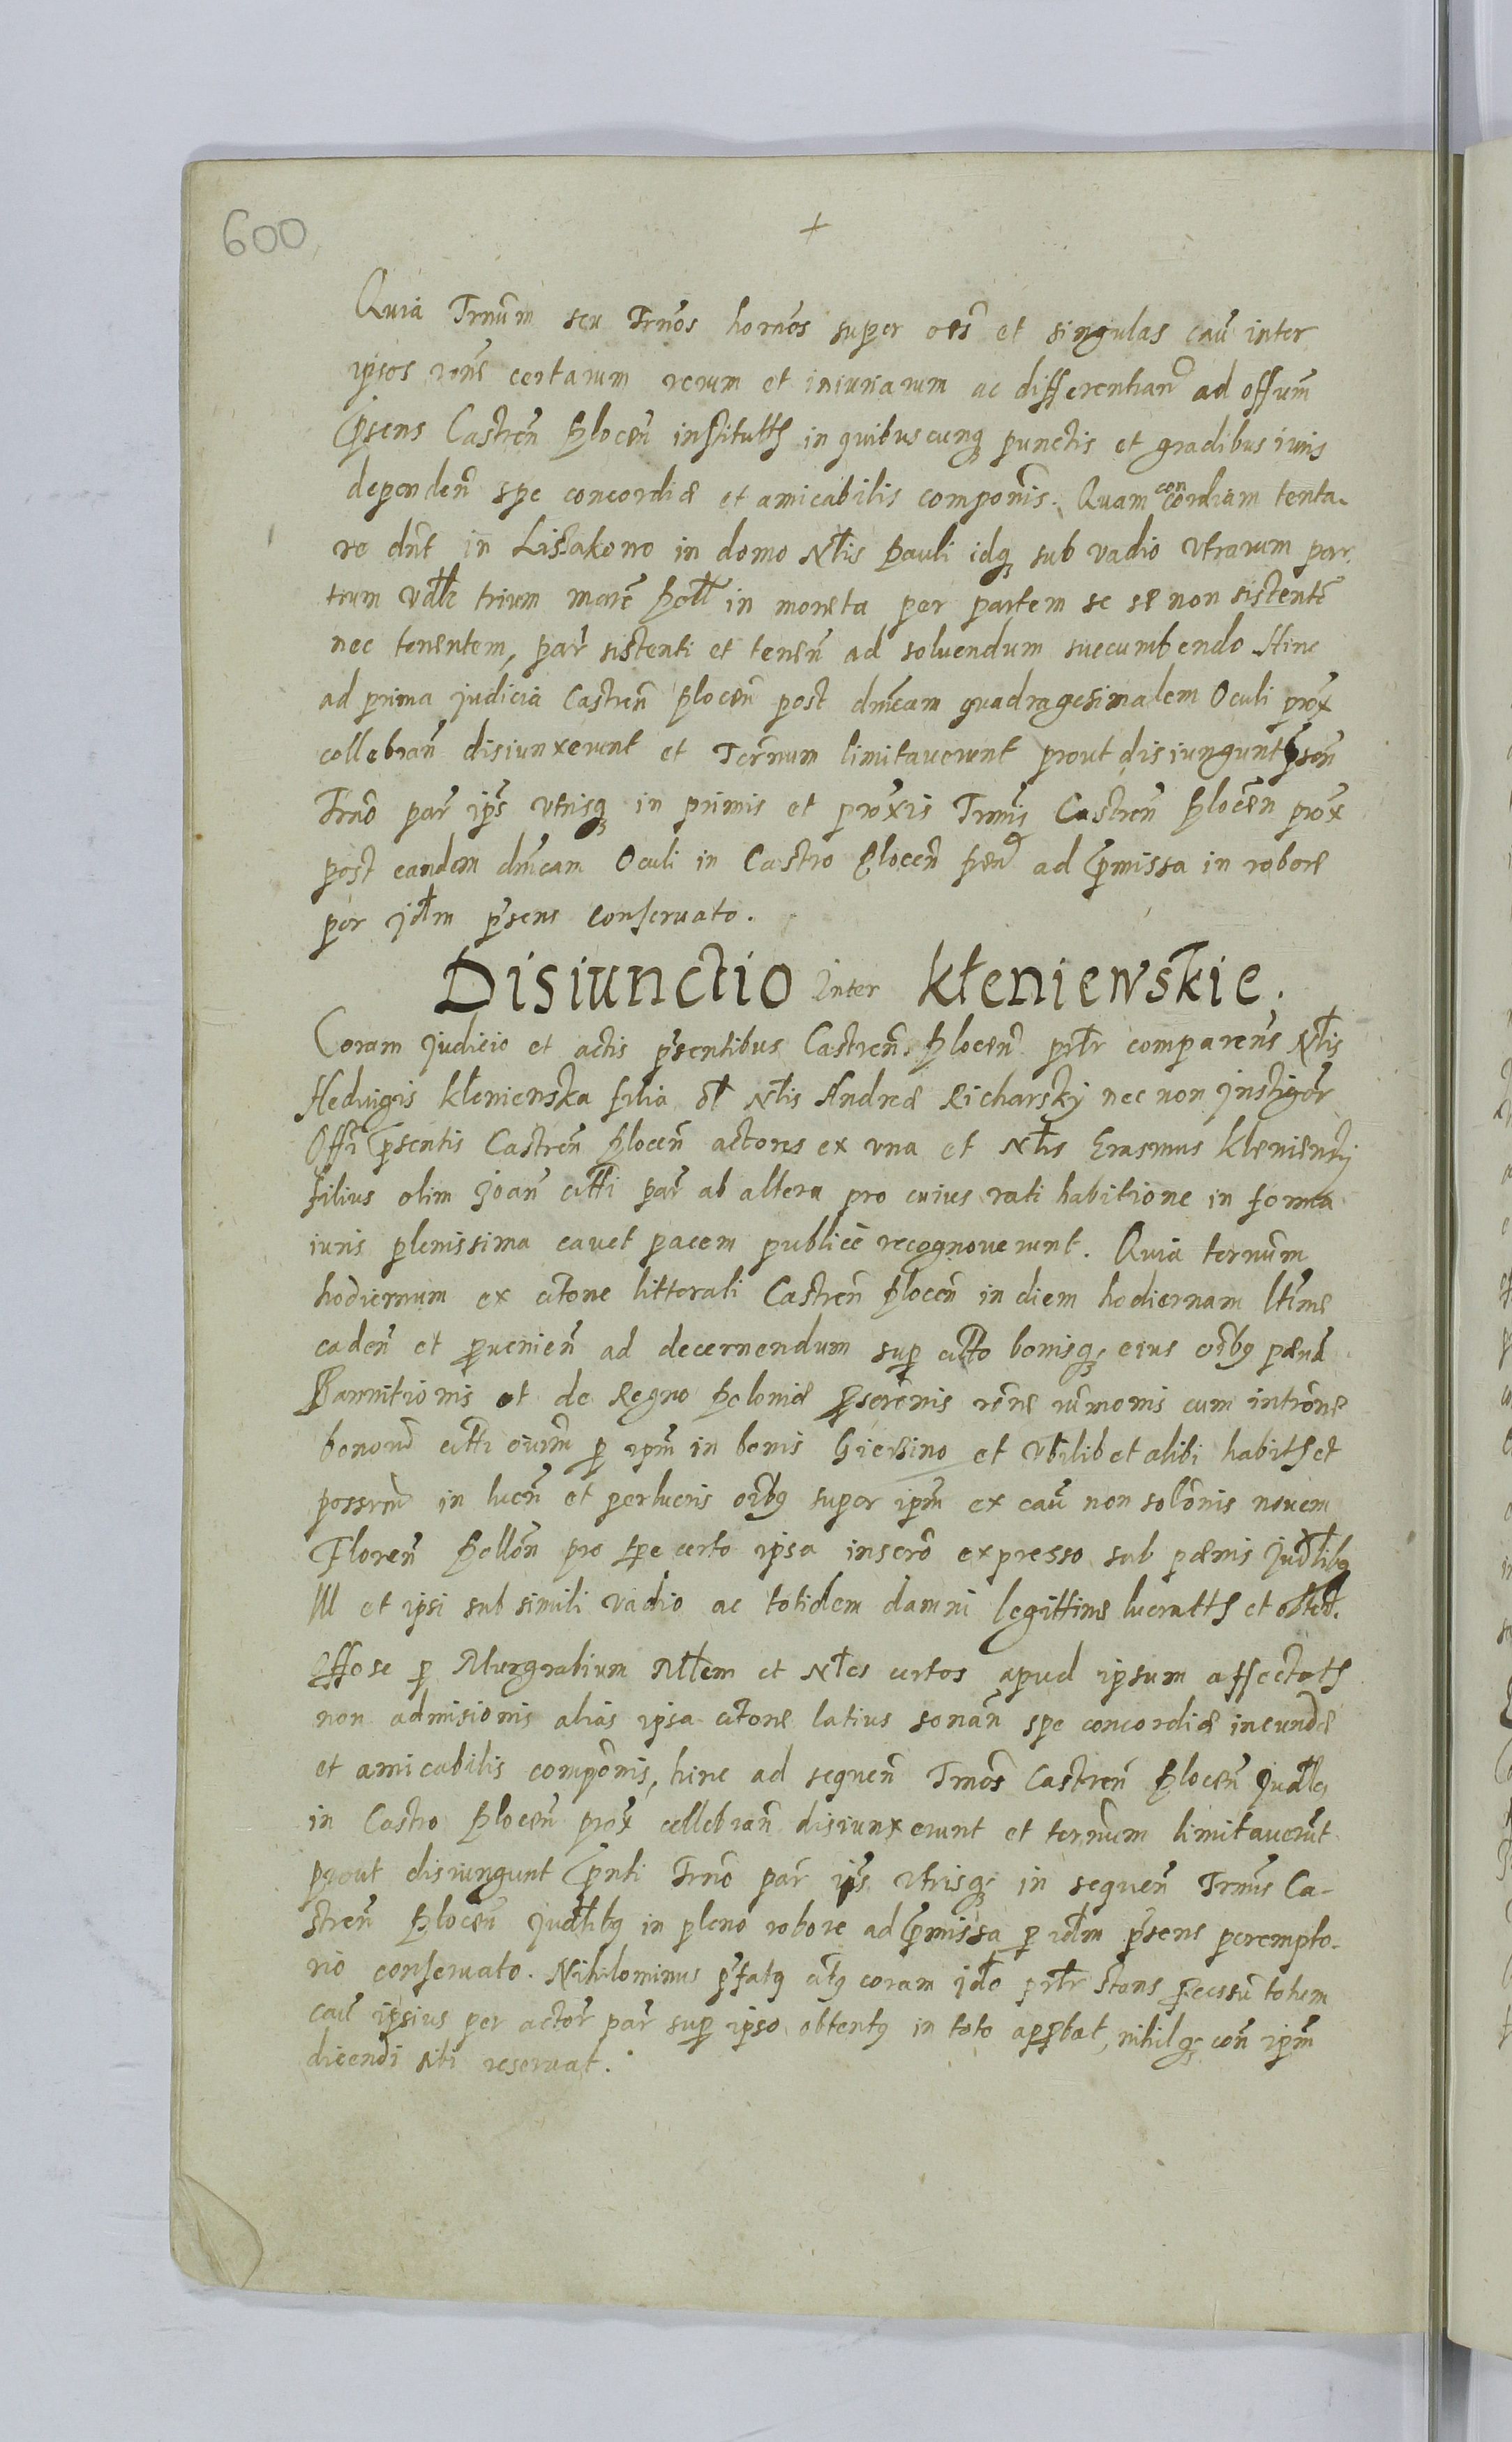 600
+
Quia Trnum seu Trnos hornos super oes et singulas cau inter
ipsos rone certarum rerum et iniuriarum ac differentiar ad offum
psens Castren Plocen institutts in quibuscunq punctis et gradibus iuris
dependen spe concordiæ et amicabilis componis. Quam concordiam tenta-
re dnt in Lissakowo in domo Nlis Pauli idq sub vadio vtrarum par-
tium vdlt trium marc Poll in moneta per partem se se non sistente
nec tenentem, par sistenti et tenen ad soluendum succumbendo Hinc
ad prima judicia Castren Plocen post dnicam quadragesimalem Oculi prox
cellebran disiunxerunt et Ternum limitauerunt prout disiungunt psen
Trno par ips vtrisq in primis et proxis Trnis Castren Plocen prox
post eandem dnicam Oculi in Castro Plocen fien ad pmissa in robore
per jdlm psens conseruato.
Disiunctio inter Kłeniewskie.
Coram judicio et actis psentibus Castren. Plocen prlr comparens Nlis
Hedvigis Kłeniewska filia ol Nlis Andreæ Richarskj nec non jnstigor
Offi psentis Castren Plocen actores ex vna et Nlis Erasmus Kleniewskj
filius olim Joan citti par ab altera pro cuius rati habitione in forma
iuris plenissima cauet pacem publice recognouerunt. Quia ternum
hodiernum ex citone litterali Castren Plocen in diem hodiernam ltime
caden et prouenien ad decernendum sup citto bonisq eius oibq pæna
Bannitionis et de Regno Poloniæ pscronis rone rumonis cum introne
bonorum citti eiusm p ipm in bonis Giersino et vbilibet alibi habits et
possess in lucen et perlucris oibq super ipm ex cau non solonis nouem
Floren Pollon pro spe certo ipsa inscro expresso sub pænis judlibq
III et ipsi sub simili vadio ac totidem damni legittime lucratts et obtent.
Effose p Murgrabium Mlem et Nles certos apud ipsum affectats
non admisionis alias ipsa citone latius sonan spe concordiæ ineundæ
et amicabilis componis, hinc ad sequen Trnos Castren Plocen judles
in Castro Plocen prox cellebran disiunxerunt et ternum limitauerunt
prout disiungunt pnti Trno par ips vtrisq in sequen Trnis Ca-
stren Plocen judlibq in pleno robore ad pmissa p idlm psens perempto-
rio conseruato. Nihilominus pfatq citq coram jdlo prlr stans pcessu totum
cau ipsius per actor par sup ipso obtentq in toto approbat, nihilq con ipm
dicendi siti reseruat.